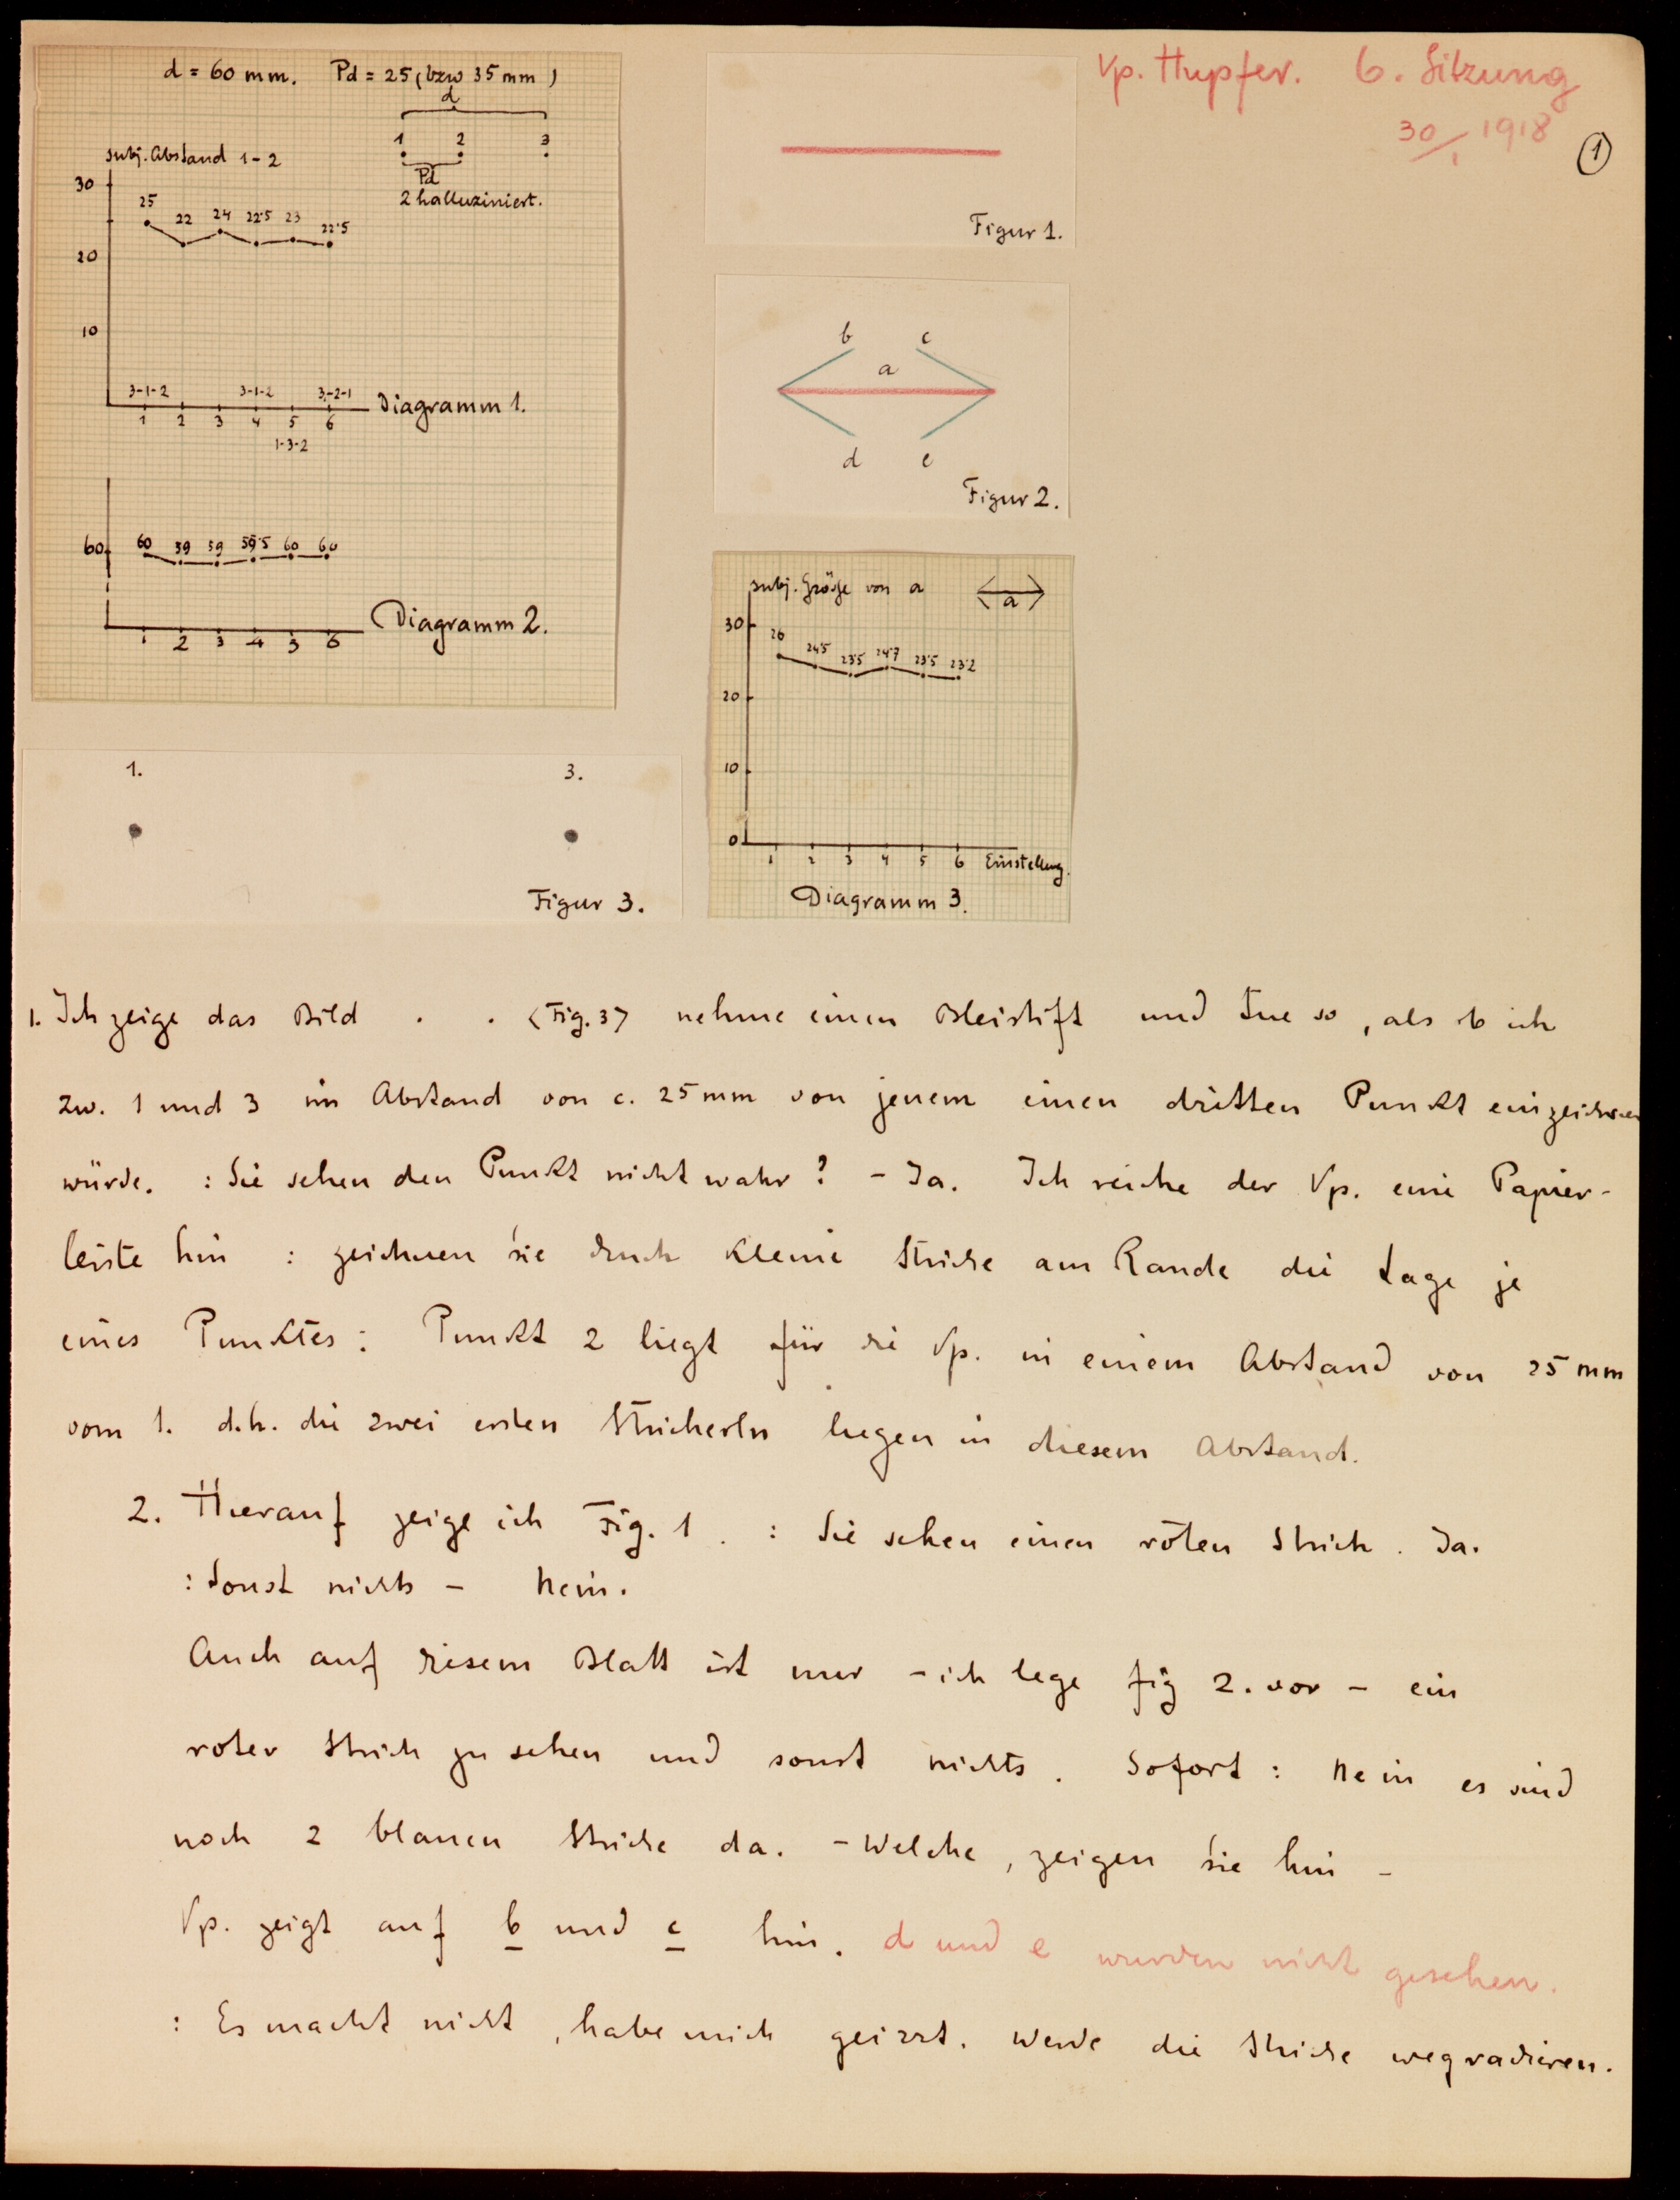 Vp. Hupfer. 6. Sitzung
30/1 1918
1
d = 60 mm. Pd = 25 (bzw 35 mm)
d
1 2 3
Pd
2 halluziniert.
subj. Abstand 1-2
30
25 22 24 22·5 23 22·5
20
10
3-1-2 3-1-2 3-2-1
1 2 3 4 5 6
Diagramm 1.
1-3-2
60
60 59 59 59·5 60 60
1 2 3 4 5 6
Diagramm 2.
Figur 1.
b c
a
d e
Figur 2.
subj. Größe von a
a
30
26 24·5 23·5 24·7 23·5 23·2
20
10
0
1 2 3 4 5 6 Einstellung.
Diagramm 3.
1. 3.
Figur 3.
1. Ich zeige das Bild . . <Fig. 3> nehme einen Bleistift und tue so, als ob ich
zw. 1 und 3 im Abstand von c. 25 mm von jenem einen dritten Punkt einzeichnen
würde. : Sie sehen den Punkt nicht wahr? - Ja. Ich reiche der Vp. eine Papier-
leiste hin : zeichnen Sie durch kleine Striche am Rande die Lage je
eines Punktes: Punkt 2 liegt für die Vp. in einem Abstand von 25 mm
vom 1. d.h. die zwei ersten Stricherln liegen in diesem Abstand.
2. Hierauf zeige ich Fig. 1. : Sie sehen einen roten Strich. Ja.
: Sonst nichts - Nein.
Auch auf diesem Blatt ist nur - ich lege Fig 2. vor - ein
roter Strich zu sehen und sonst nichts. Sofort: Nein es sind
noch 2 blauen Striche da. - Welche, zeigen Sie hin -
Vp. zeigt auf b und c hin. d und e wurden nicht gesehen.
: Es macht nicht, habe mich geirrt. Werde die Striche wegradieren.